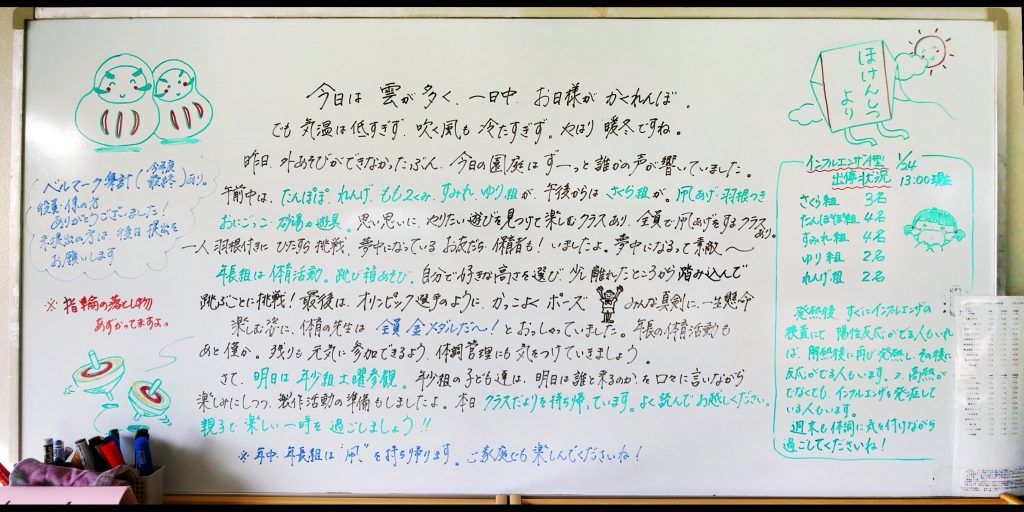 今日は 雲が多く、一日中、お日様が かくれんぼ。
でも 気温は低すぎず、吹く風も 冷たすぎず。やはり 暖冬ですね。
昨日、外あそびができなかったぶん、今日の園庭は ずーっと 誰かの声が 響いていました。
午前中は、たんぽぽ、れんげ、もも2くみ、すみれ、ゆり組が、午後からは さくら組が。凧あげ・羽根つき
おにごっこ・砂場・遊具。思い思いに、やりたい遊びを見つけて楽しむクラスあり、全員で凧あげをするクラス
あり。
一人 羽根付きに ひたすら挑戦、夢中になっている お友だち・保育者も！いましたよ。夢中になるって素敵〜
年長組は 体育活動。跳び箱あそび。自分で好きな高さを選び、少し離れたところから 踏み込んで
跳ぶことに挑戦！最後は、オリンピック選手のように、かっこよく ポーズ みんな真剣に、一生懸命
楽しむ姿に、体育の先生は 全員、金メダルだ〜！とおっしゃっていました。年長の体育活動も
あと僅か。残りも 元気に 参加できるよう、体調管理にも 気をつけていきましょう。
さて、明日は 年少組 土曜参観。年少組の子ども達は、明日は誰と来るのか、を 口々に言いながら
楽しみにしつつ、製作活動の準備もしましたよ。本日 クラスだよりを持ち帰っています。よく読んでお越しください。
親子で 楽しい一時を 過ごしましょう!!
※年中、年長組は "凧" を 持ち帰ります。ご家庭でも 楽しんでくださいね！
ベルマーク集計(今年度最終)あり。
役員・係の方
ありがとうございました！
未提出の方は、後日 提出を
お願いします
※ 指輪の落とし物
あずかってますよっ
ほけんしつ
より
インフルエンザA型 1/24
出停状況 13:00現在
さくら組 3名
たんぽぽ組 4名
すみれ組 4名
ゆり組 2名
れんげ組 2名
発熱後 すぐにインフルエンザの
検査にて 陽性反応がでる人もいれ
ば、解熱後に再び発熱し、その後に
反応がでる人もいます。又、高熱が
でなくても、インフルエンザを発症して
いる人もいます。
週末も体調に気を付けながら
過ごしてくださいね！